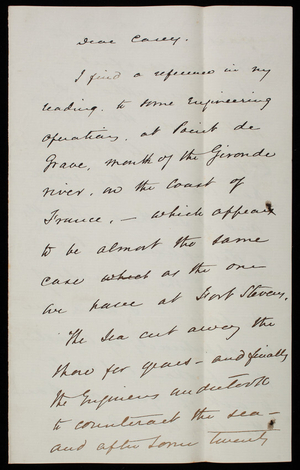 Dear Casey.
I find a reference in my
reading, to some Engineering
operations, at Point de
Grave, mouth of the Gironde
river, on the coast of
France, — which appears
to be almost the same
case which as the one
we have at Fort Stevens.
The Sea cut away the
shore for years — and finally
the Engineers undertook
to counteract the sea —
and after some twenty